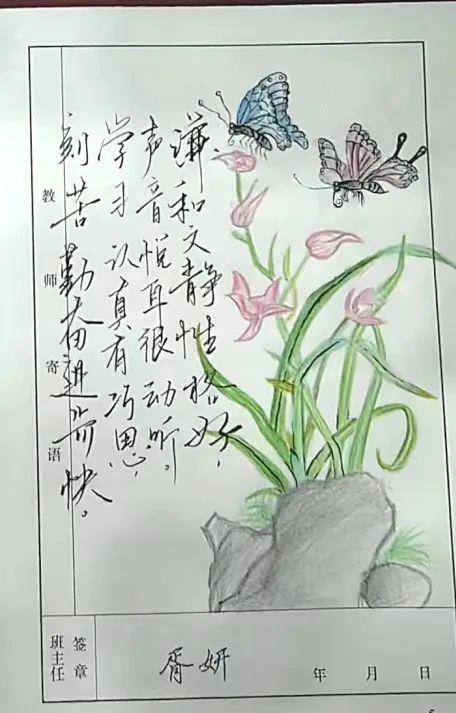 谦和文静性格好，
声音悦耳很动听。
学习认真有巧思，
刻苦勤奋进前快。
教师寄语
班主任
签章
胥妍
年 月 日